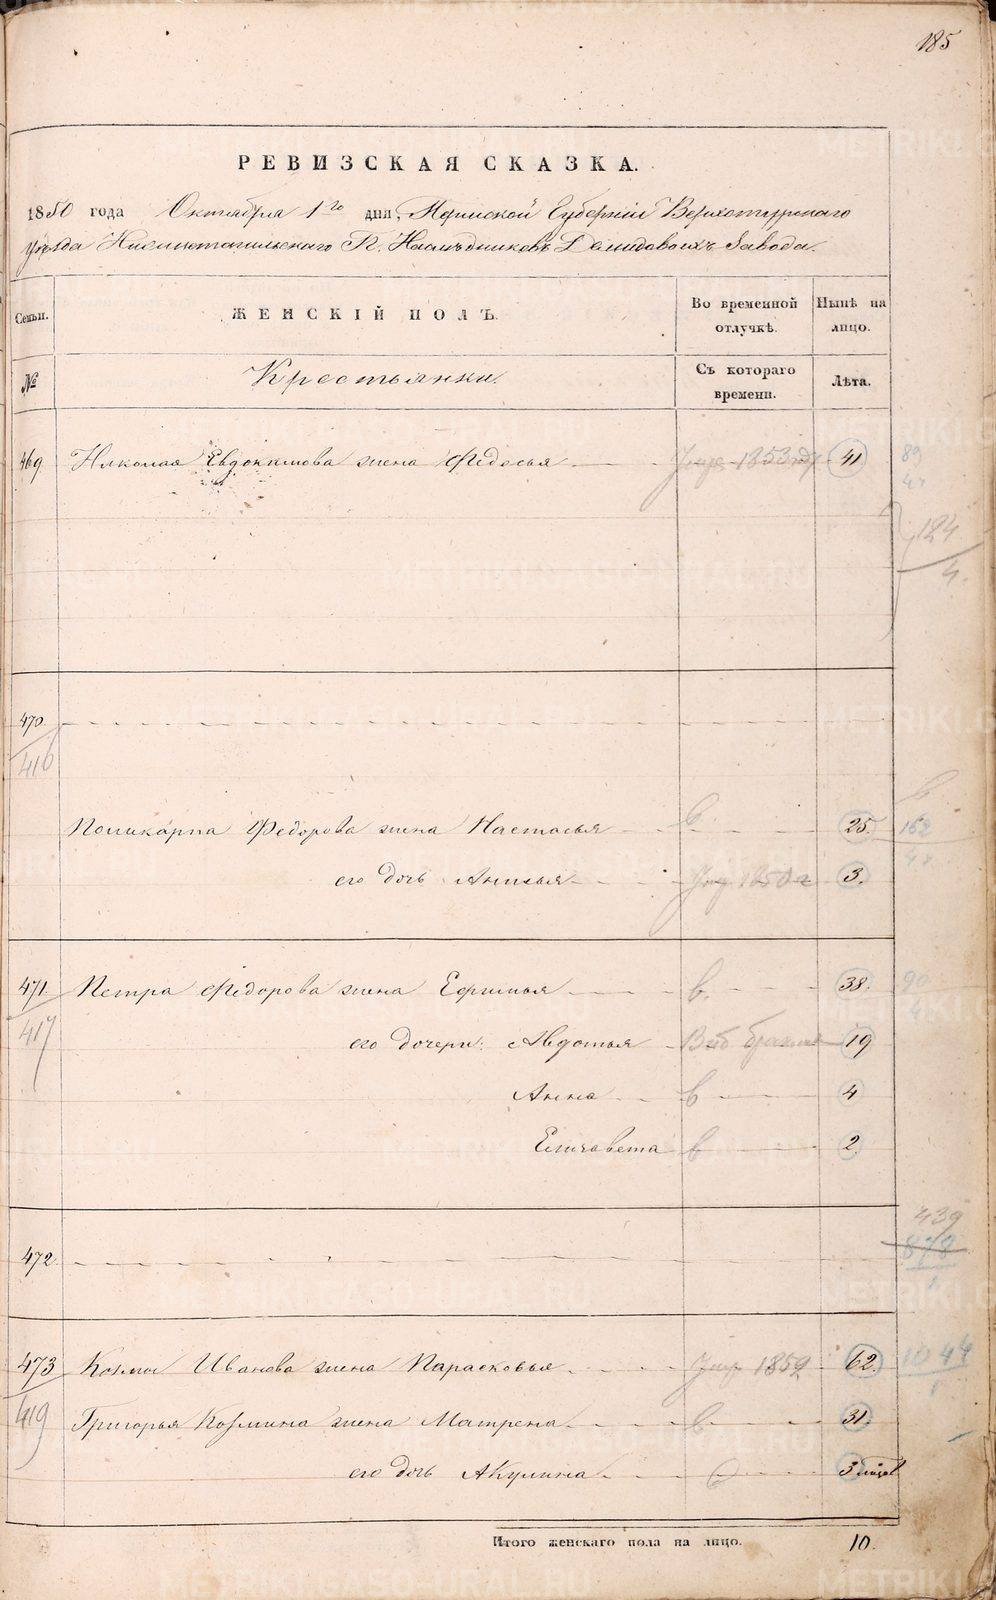 185
РЕВИЗСКАЯ СКАЗКА.
1850 года Октября 1го дня, Пермской Губерніи Верхотурскаго
уѣзда Нижнетагильскаго Г. Наслѣдниковъ Демидовыхъ Завода.
Семьи. ЖЕНСКІЙ ПОЛЪ. Во временной отлучкѣ. Нынѣ на лицо.
№ Крестьянки. Съ котораго времени. Лѣта.
469 Николая Евдокимова жена Федосья 1853 41
89
184
4.
470
416
Поликарпа Федорова жена Настасья в. 25. 162
его дочь Анисья 1850 3.
471 Петра Федорова жена Ефимья в. 38. 90
417
его дочери: Авдотья 19
Анна в 4
Елизавета в 2
439
878
472
473 Козмы Ивана жена Парасковья 1859 62. 1044
419
Григорья Козмина жена Матрена в 31.
его дочь Акулина 3
Итого женскаго пола на лицо. 10.
METRIKI.GASO-URAL.RU